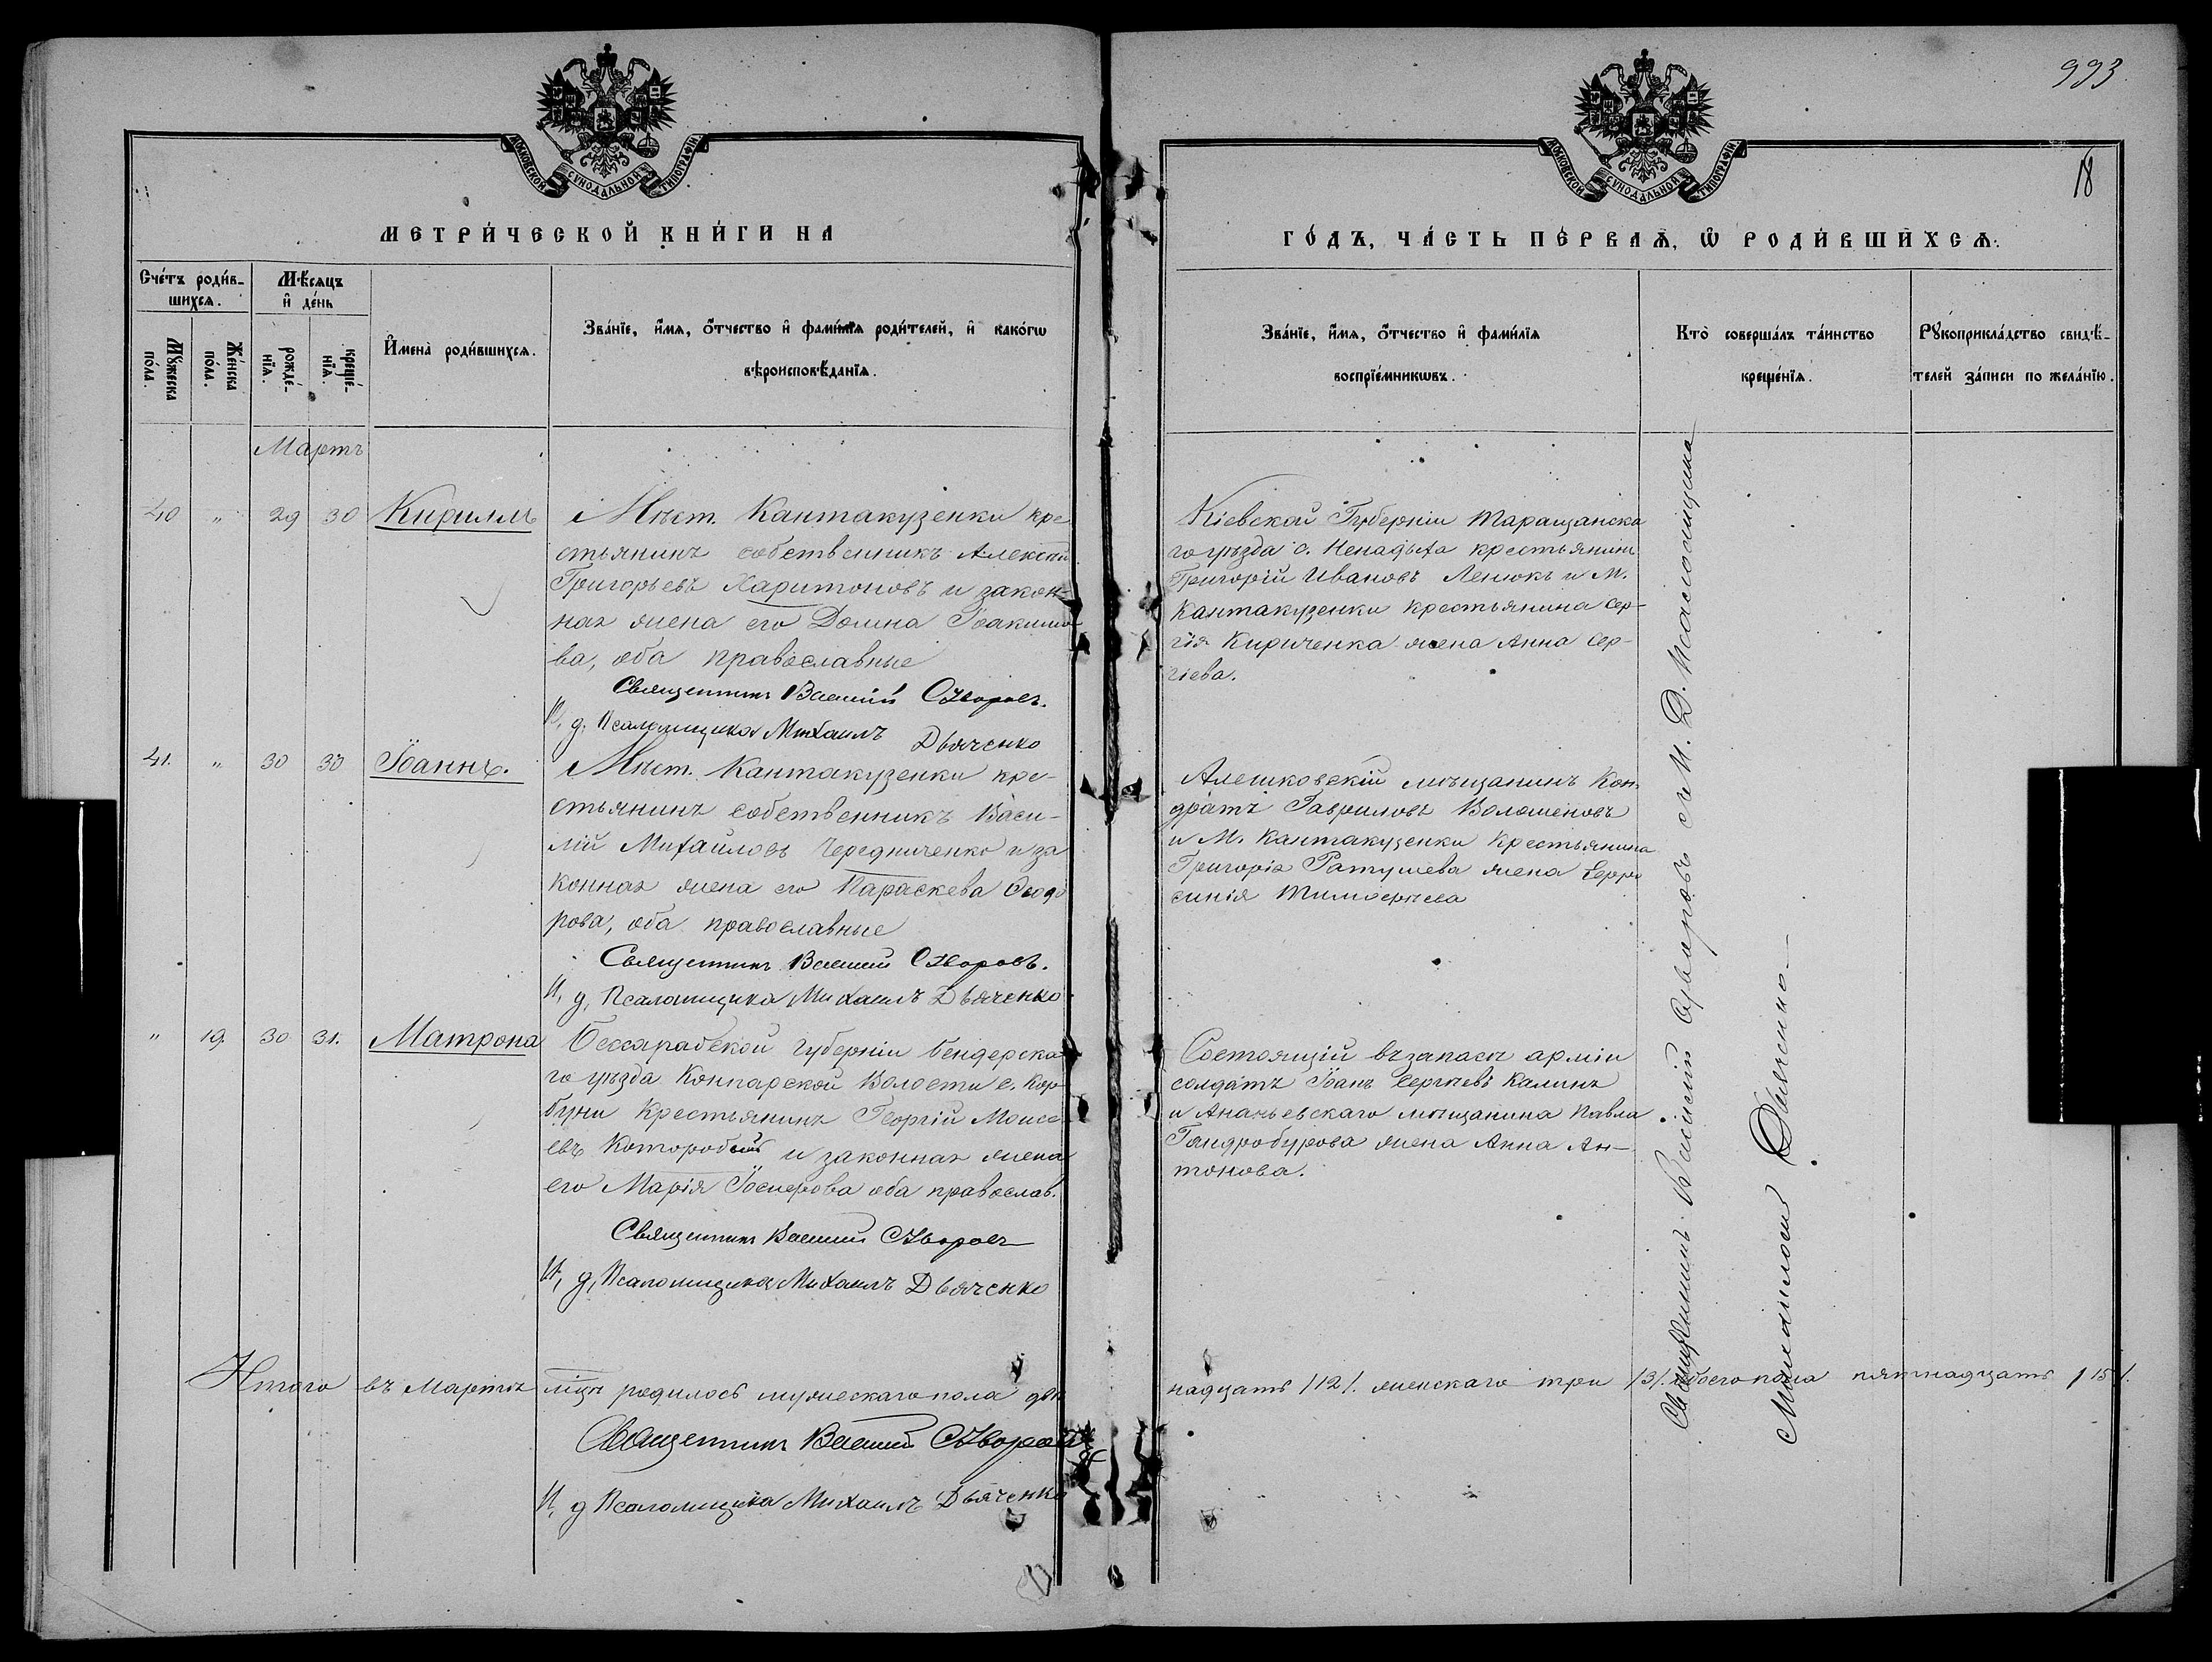 993
18
МОСКОВСКОЙ СѴНОДАЛЬНОЙ ТИПОГРАФІИ
МОСКОВСКОЙ СѴНОДАЛЬНОЙ ТИПОГРАФІИ
МЕТРИ́ЧЕСКОЙ КНИ́ГИ НА
ГО́ДЪ, ЧА́СТЬ ПЕ́РВАѦ, Ѽ РОДИ́ВШИХСѦ.
Сче́тъ роди́в-
шихсѧ.
Мꙋ́жеска
по́ла.
Же́нска
по́ла.
Мѣ́сѧцъ
и҆ де́нь
рожде́-
нїѧ.
креще́-
нїѧ.
И҆мена̀ роди́вшихсѧ.
Зва́нїе, и҆́мѧ, ѻ҆́тчество и҆ фами́лїѧ роди́телей, и҆ како́гѡ
вѣроисповѣ́данїѧ.
Зва́нїе, и҆́мѧ, ѻ҆́тчество и҆ фами́лїѧ
воспрїе́мникѡвъ.
Кто̀ соверша́лъ та́инство
креще́нїѧ.
Рꙋкоприкла́дство свидѣ́-
телей за́писи по жела́нїю.
Мартъ
40 " 29 30 Кириллъ
Мѣст. Кантакузенки кре
стьянинъ собственникъ Алексѣй
Григорьевъ Харитоновъ и закон-
ная жена его Домна Іоакимо
ва, оба православные
Священникъ Василій Суворовъ.
И. д. Псаломщика Михаилъ Дьяченко
Кіевской Губерніи Таращанска
го уѣзда с. Ненадыха крестьянинъ
Григорій Ивановъ Ленюкъ и М.
Кантакузенки крестьянина Сер-
гія Кириченка жена Анна Сер-
гіева.
41. " 30 30 Іоаннъ.
Мѣст. Кантакузенки кре-
стьянинъ собственникъ Васи-
лій Михайловъ Чередниченко и за
конная жена его Параскева Ѳеодо
рова, оба православные
Священникъ Василій Суворовъ.
И. д. Псаломщика Михаилъ Дьяченко
Алешковскій мѣщанинъ Кон-
дратъ Гавриловъ Волошеновъ
и М. Кантакузенки Крестьянина
Григорія Ратушева жена Евфро
синія Тимоѳеева
" 19. 30 31. Матрона
Бессарабской губерніи Бендерска
го уѣзда Волости с. Кор-
буни Крестьянинъ Георгій Моисе
евъ и законная жена
его Марія оба православ.
Священникъ Василій Суворовъ
И. д. Псаломщика Михаилъ Дьяченко
Состоящій въ запасѣ арміи
солдатъ Іоанъ Сергѣевъ Калинъ
и Ананьевскаго мѣщанина Павла
Гандробурова жена Анна Ан-
тонова.
Священникъ Василій Суворовъ съ И. Д. Псаломщика
Михаиломъ Дьяченко
Итого въ Мартѣ мѣсяцѣ родилось мужескаго пола двѣ
надцать /12/. женскаго три /3/. обоего пола пятнадцать /15/.
Священникъ Василій Суворовъ
И. д Псаломщика Михаилъ Дьяченко